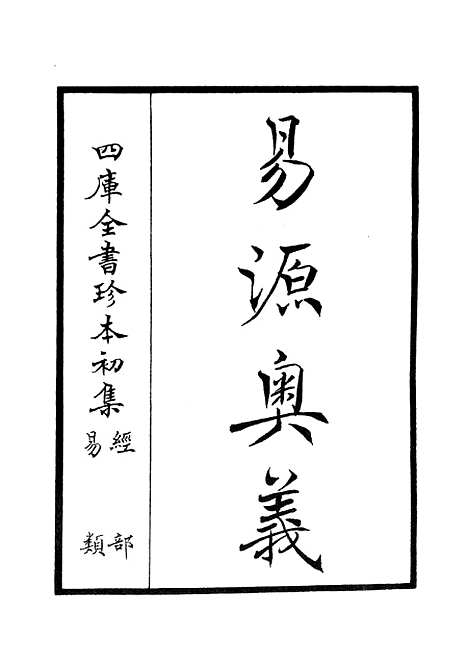 易源奧義
四庫全書珍本初集
經部
易類